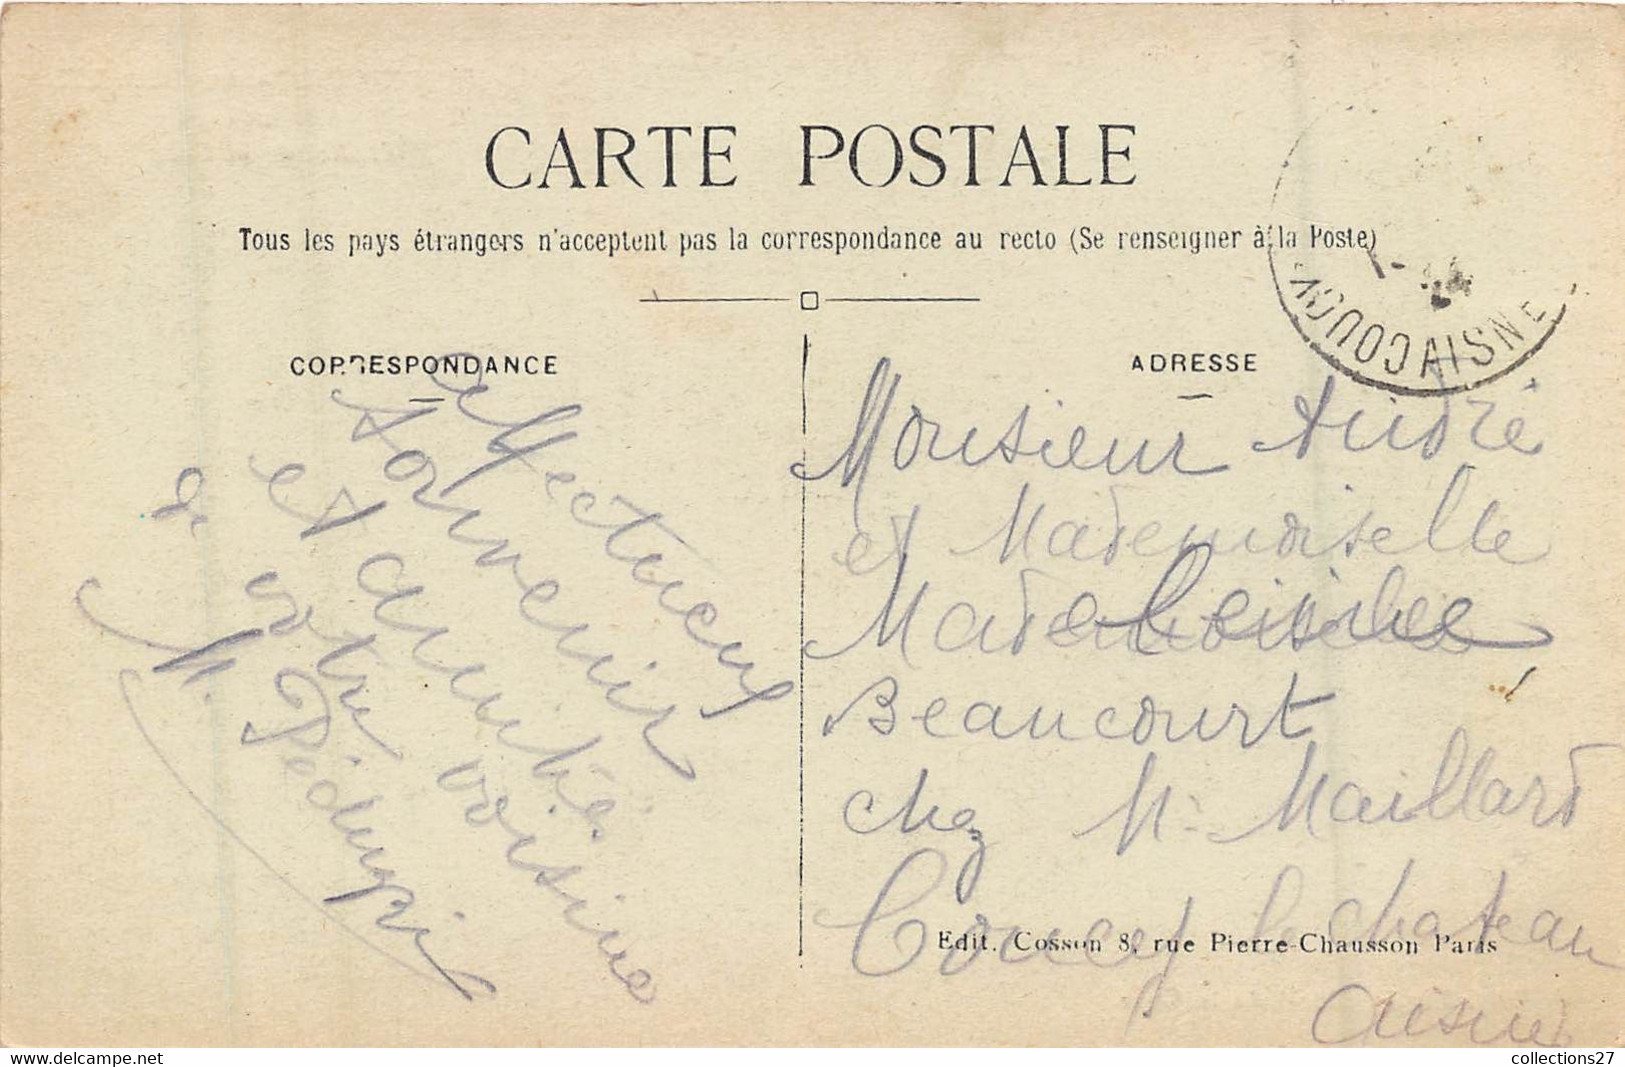 CARTE POSTALE
Tous les pays étrangers n'acceptent pas la correspondance au recto (Se renseigner à la Poste)
COUCY AISNE
CORRESPONDANCE
ADRESSE
affectueux
souvenir
et amitiés
de votre voisine
M.
Monsieur André
et Mademoiselle
Beaucourt
chez Mr Maillard
Coucy le chateau
Aisne
Edit. Cosson 8, rue Pierre-Chausson Paris
collections27